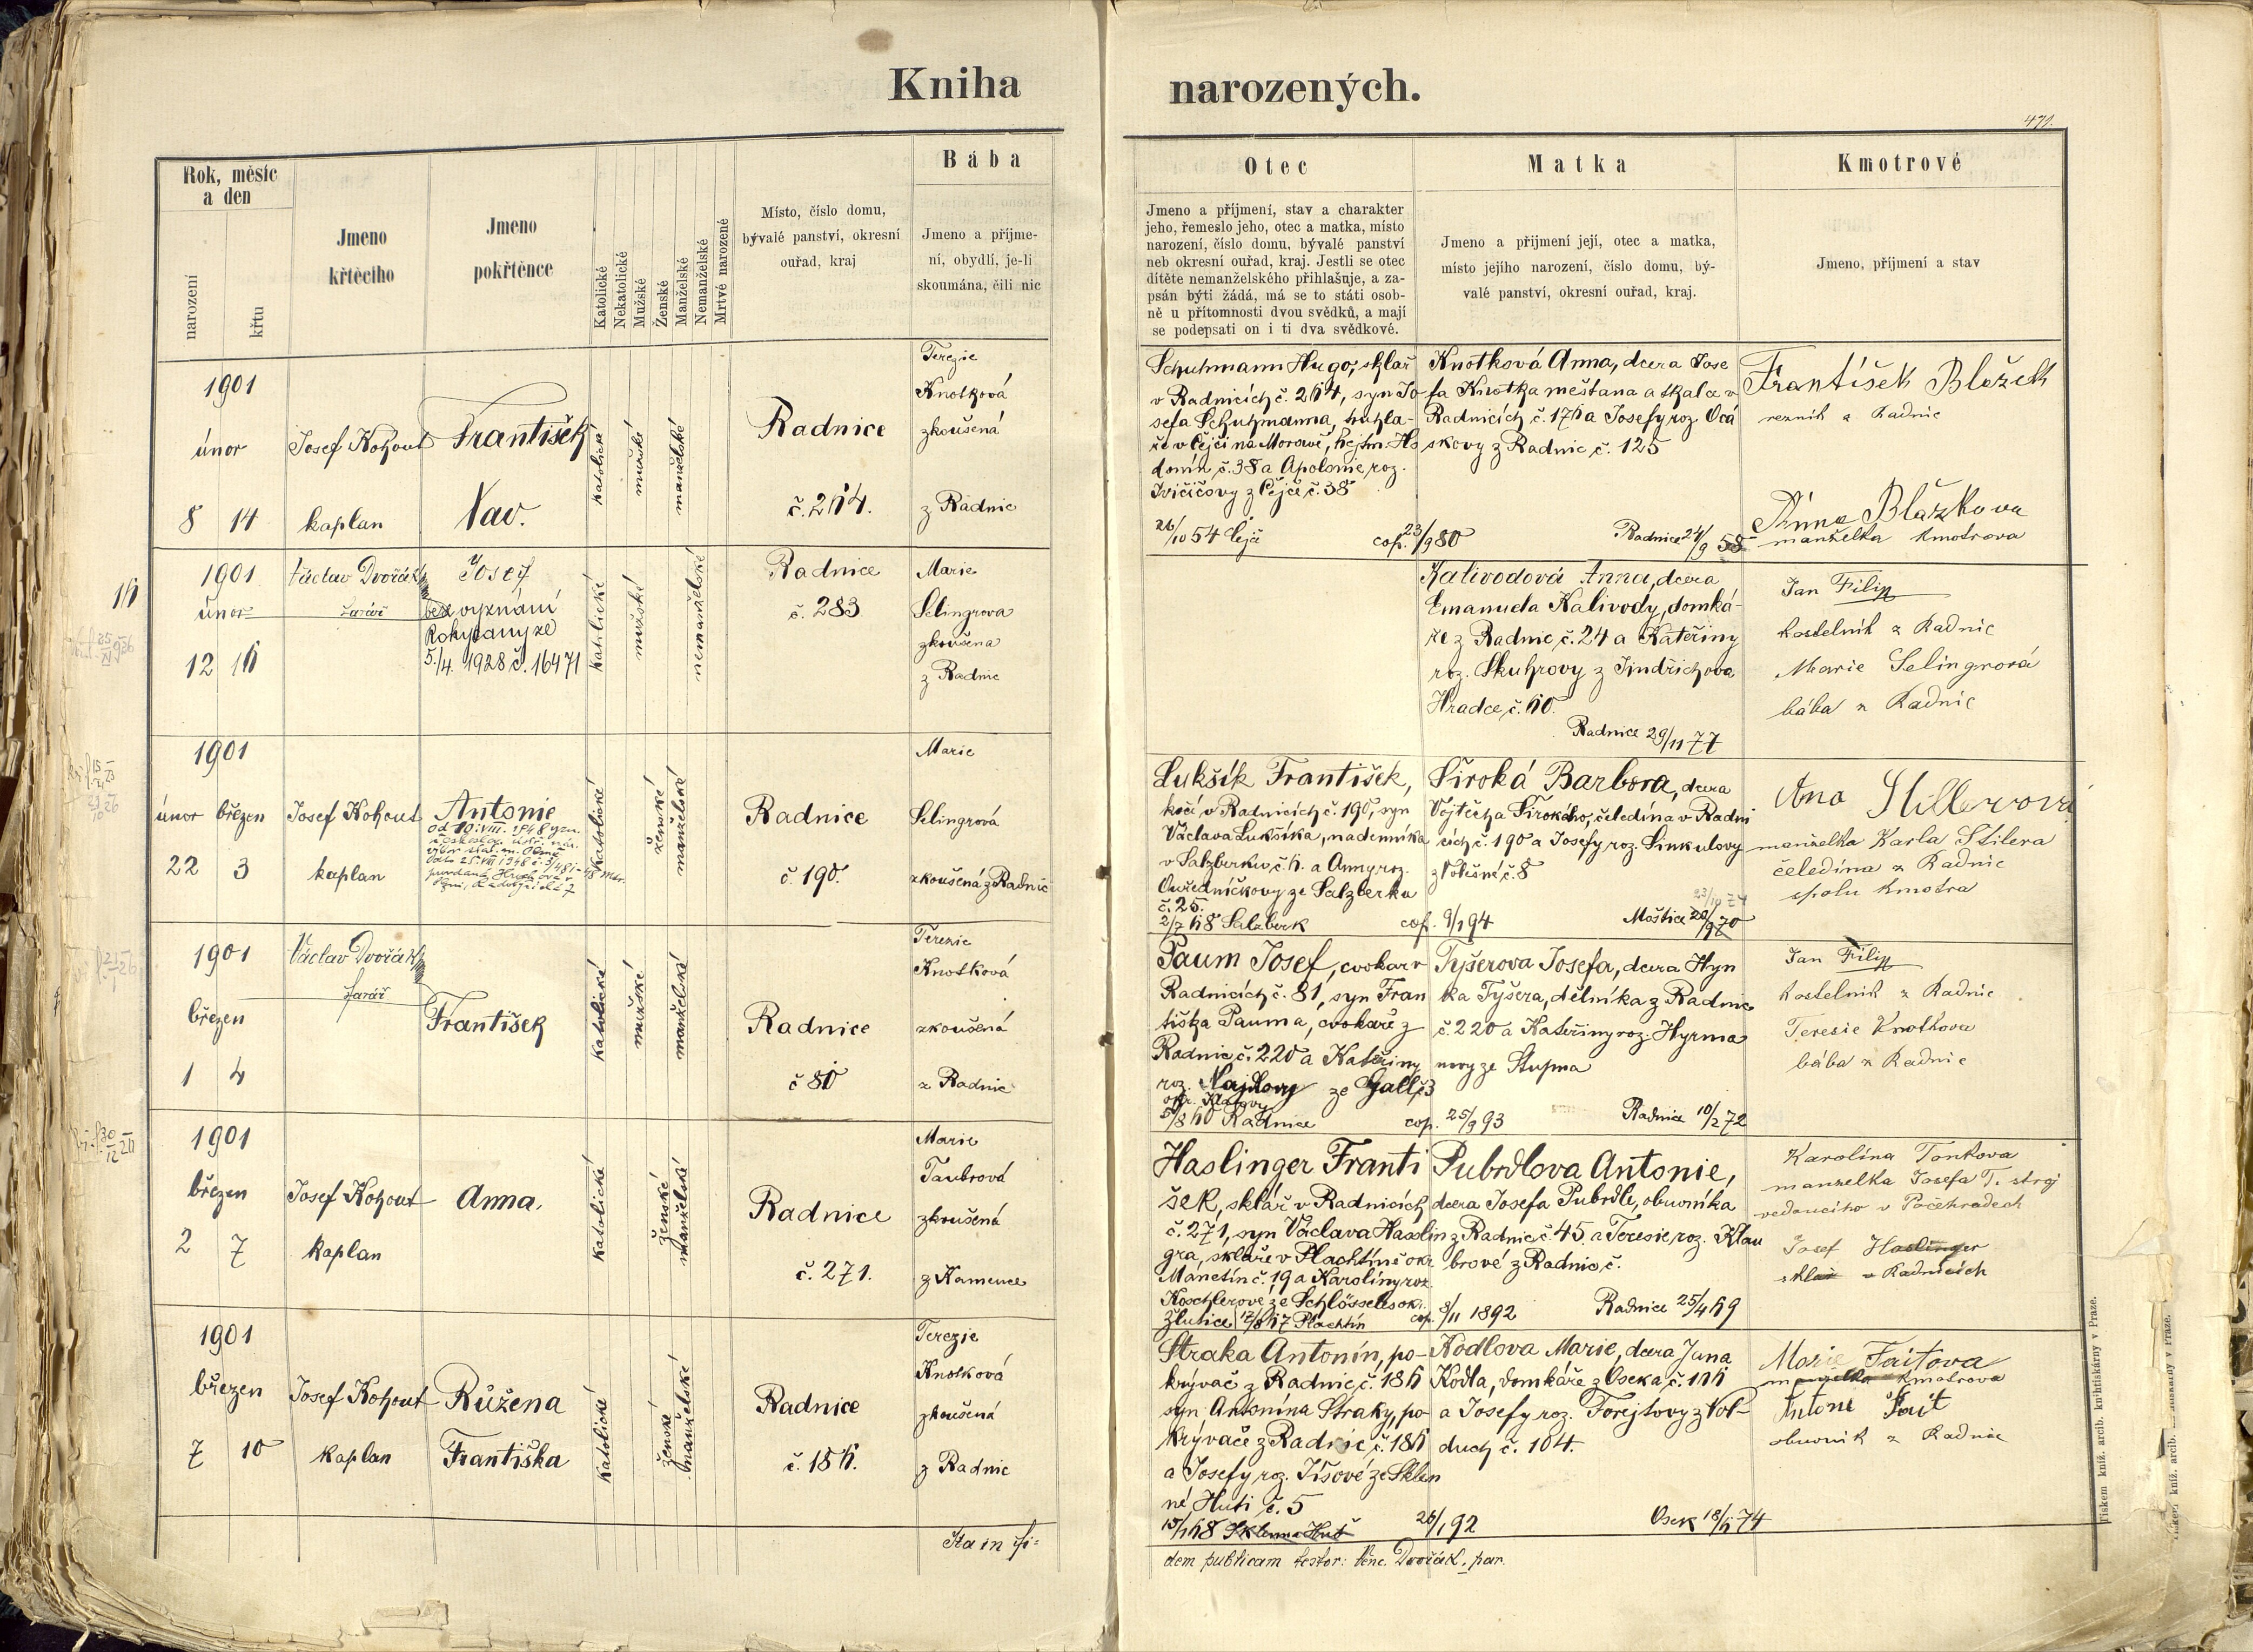 Kniha
narozených.
471.
Rok, měsíc
a den
narození
křtu
Jmeno
křtěcího
Jmeno
pokřtěnce
Katolické
Nekatolické
Mužské
Ženské
Manželské
Nemanželské
Mrtvě narozené
Místo, číslo domu,
bývalé panství, okresní
ouřad, kraj
Bába
Jmeno a příjme-
ní, obydlí, je-li
skoumána, čili nic
Otec
Jmeno a příjmení, stav a charakter
jeho, řemeslo jeho, otec a matka, místo
narození, číslo domu, bývalé panství
neb okresní ouřad, kraj. Jestli se otec
dítěte nemanželského přihlašuje, a za-
psán býti žádá, má se to státi osob-
ně u přítomnosti dvou svědků, a mají
se podepsati on i ti dva svědkové.
Matka
Jmeno a přijmení její, otec a matka,
místo jejího narození, číslo domu, bý-
valé panství, okresní ouřad, kraj.
Kmotrové
Jmeno, příjmení a stav
1901
únor
8 14
Josef Kohout
kaplan
František
Xav.
katolické
mužské
manželské
Radnice
č. 264.
Terezie
Knotková
zkoušená
z Radnic
Schuhmann Hugo, sklař
v Radnicích č. 264, syn Jo-
sefa Schuhmanna, truhla-
ře v Čejči na Moravě, hejtm. Ho
donín č. 38 a Apolonie roz.
Ivičičovy z Čejče č. 38
26/10 54 Čejč
cop. 23/9 80
Knotková Anna, dcera Jose
fa Knotka měšťana a tkalce v
Radnicích č. 176 a Josefy roz. Ocá
skovy z Radnic č. 125
Radnice 24/9 58
František Blažek
řezník z Radnic
Anna Blažkova
manželka kmotrova
1901
únor
12 16
Václav Dvořák
farář
Josef
bez vyznání
Rokycany ze
5./4. 1928 č. 16471
katolické
mužské
nemanželské
Radnice
č. 283
Marie
Selingrova
zkoušena
z Radnic
Kalivodová Anna, dcera
Emanuela Kalivody, domká-
ře z Radnic č. 24 a Kateřiny
roz. Skuhrovy z Jindřichova
Hradce, č. 60.
Radnice 29/11 77
Jan Filip
kostelník z Radnic
Marie Selingrová
bába z Radnic
1901
únor březen
22 3
Josef Kohout
kaplan
Antonie
katolické
ženské
manželské
Radnice
č. 190.
Marie
Selingrová
zkoušená z Radnic
Lukšík František,
kočí v Radnicích č. 190, syn
Václava Lukšíka, nadenníka
v Salzberku č. 6. a Anny roz.
Ouředníčkovy ze Salzberka
č. 25.
2/7 68 Salzberk
cop. 9/1 94
Široká Barbora, dcera
Vojtěcha Širokého, čeledína v Radni
cích č. 190 a Josefy roz. Sinkulovy
Moštice 20/9 70
Ana Stillerová
manželka Karla Stilera
čeledína z Radnic
spolu kmotra
1901
březen
1 4
Václav Dvořák
farář
František
katolické
mužské
manželské
Radnice
č 81
Terezie
Knotková
zkoušená
z Radnic
Paum Josef, cvokař v
Radnicích č. 81, syn Fran
tiška Pauma, cvokaře z
Radnic č. 220 a Kateřiny
okr. Klatovy
5/8 60 Radnice
cop. 25/9 93
Tyšerova Josefa, dcera Hyn
ka Tyšera, dělníka z Radnic
č. 220 a Kateřiny roz. Hyrma
novy ze Stupna
Radnice 10/2 72
Jan Filip
kostelník z Radnic
Teresie Knotkova
bába z Radnic
1901
březen
2 7
Josef Kohout
kaplan
Anna.
katolické
ženské
manželské
Radnice
č. 271.
Marie
Taubrová
zkoušená
z Kamence
Haslinger Franti
šek, sklář v Radnicích
č. 271, syn Václava Haslin
gra, skláře v Plachtíně okr
Manetín č. 19 a Karolíny roz.
Koschlerové ze Schlösseles ok.
Žlutice 12/8 67 Plachtín
cop. 8/11 1892
Pubrdlova Antonie,
dcera Josefa Pubrdle, obuvníka
z Radnic č. 45. a Teresie roz. Klau
brové z Radnic č.
Radnice 25/4 69
Karolina Tonkova
manželka Josefa T. stroj
vedoucího v Počehradech
Josef Haslinger
sklář v Radnicích
1901
březen
7 10
Josef Kohout
kaplan
Růžena
Františka
katolické
ženské
manželské
Radnice
č. 186.
Terezie
Knotková
zkoušená
z Radnic
Straka Antonín, po-
krývač z Radnic, č. 186
syn Antonína Straky, po-
krývače z Radnic, č. 186
a Josefy roz. Jíšové ze Sklen
né Huti č. 5
15/1 68 Sklenná Huť
26/1 92
Kodlova Marie, dcera Jana
Kodla, domkáře z Oseka, č. 116
a Josefy roz. Forejtovy z Vol-
duch č. 104.
Osek 18/6 74
Marie Faitova
manželka kmotrova
Antoni Fait
obuvník z Radnic
Ita in fi-
dem publicam testor: Venc. Dvořák, par.
Tiskem kníž. arcib. knihtiskárny v Praze.